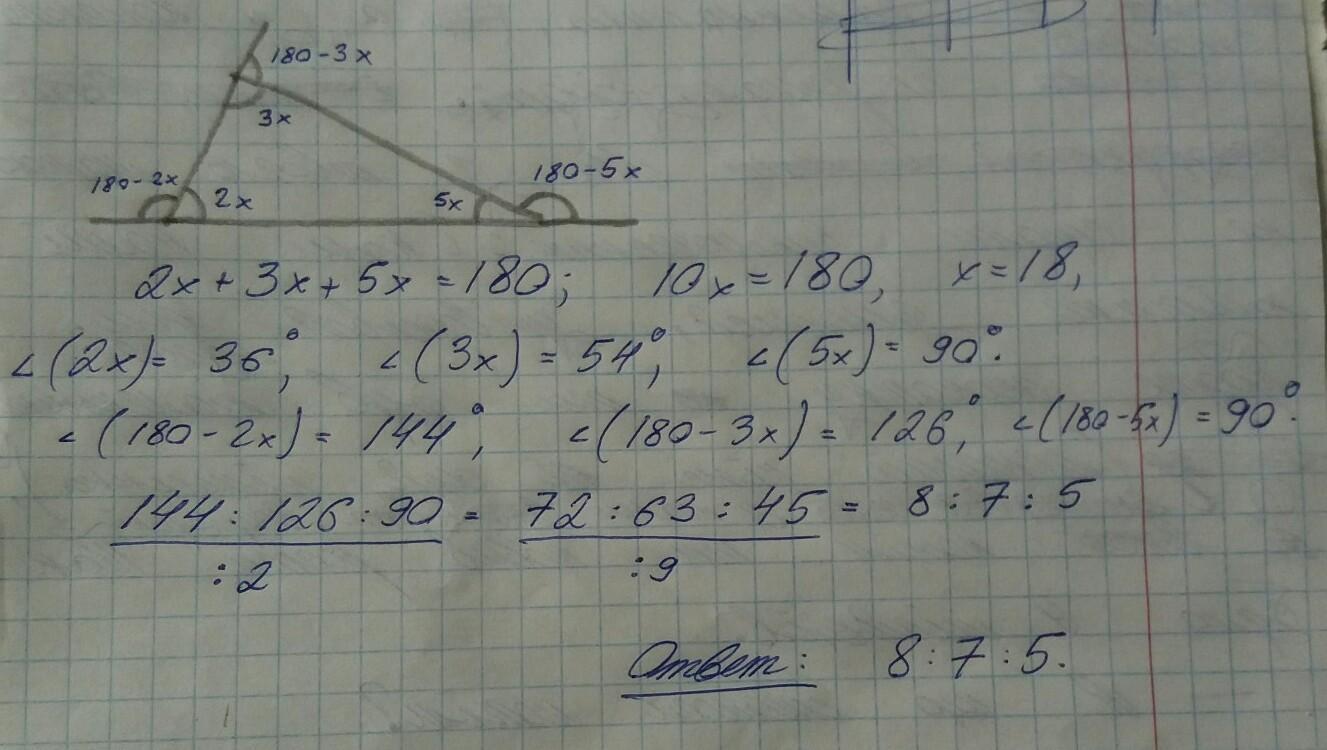 180-3x
3x
180-2x 2x 5x 180-5x
2x + 3x + 5x = 180; 10x = 180, x = 18,
∠(2x) = 36°, ∠(3x) = 54°, ∠(5x) = 90°.
∠(180-2x) = 144°, ∠(180-3x) = 126°, ∠(180-5x) = 90°.
144 : 126 : 90 = 72 : 63 : 45 = 8 : 7 : 5
:2 :9
Ответ: 8 : 7 : 5.